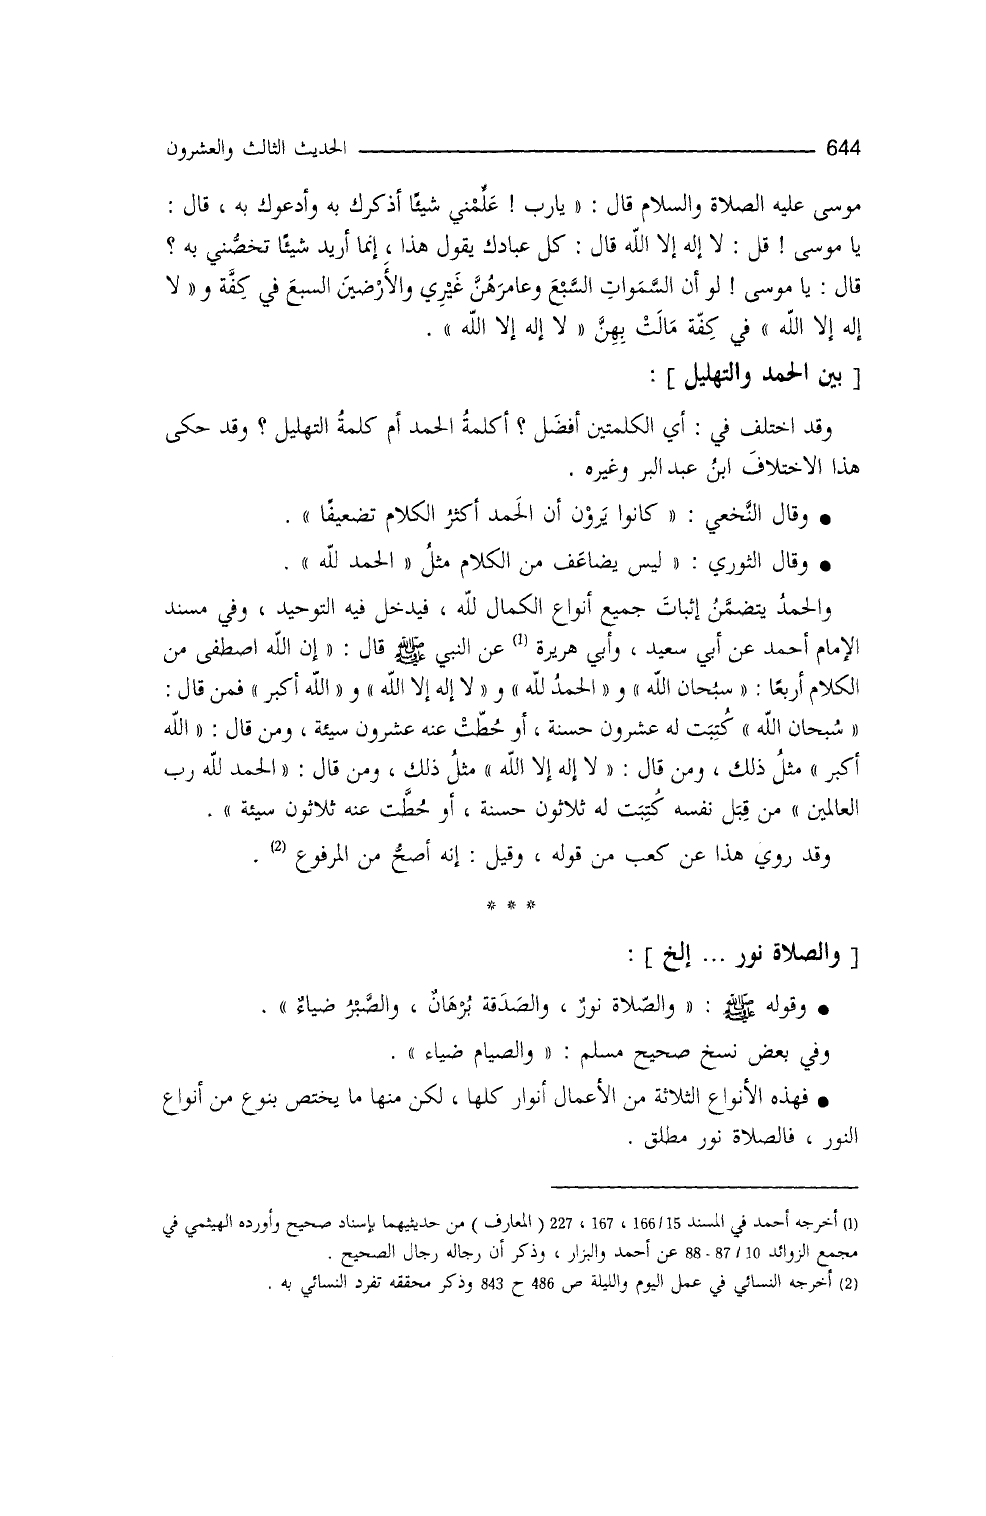 644 الحديث الثالث والعشرون
موسى عليه الصلاة والسلام قال : « يارب ! عَلِّمْني شيئًا أذكرك به وأدعوك به ، قال :
يا موسى ! قل : لا إله إلا الله قال : كل عبادك يقول هذا ، إنما أريد شيئًا تخصُّني به ؟
قال : يا موسى ! لو أن السَّمَواتِ السَّبْعَ وعامرَهُنَّ غَيْرِي والأَرْضينَ السبعَ في كِفَّة و « لا
إله إلا الله » في كِفّة مَالَتْ بِهِنَّ « لا إله إلا الله » .
[ بين الحمد والتهليل ] :
وقد اختلف في : أي الكلمتين أفضَل ؟ أكلمةُ الحمد أم كلمةُ التهليل ؟ وقد حكى
هذا الاختلافَ ابنُ عبد البر وغيره .
● وقال النَّخعي : « كانوا يَروْن أن الحَمد أكثرُ الكلام تضعيفًا » .
● وقال الثوري : « ليس يضاعَف من الكلام مثلُ « الحمد لله » .
والحمدُ يتضمَّنُ إثباتَ جميع أنواع الكمال لله ، فيدخل فيه التوحيد ، وفي مسند
الإمام أحمد عن أبي سعيد ، وأبي هريرة (1) عن النبي ﷺ قال : « إن الله اصطفى من
الكلام أربعًا : « سبُحان الله » و « الحمدُ لله » و « لا إله إلا الله » و « الله أكبر » فمن قال :
« سُبحان الله » كُتِبَت له عشرون حسنة ، أو حُطّتْ عنه عشرون سيئة ، ومن قال : « الله
أكبر » مثلُ ذلك ، ومن قال : « لا إله إلا الله » مثلُ ذلك ، ومن قال : « الحمد لله رب
العالمين » من قِبَل نفسه كُتِبَت له ثلاثون حسنة ، أو حُطَّت عنه ثلاثون سيئة » .
وقد رويَ هذا عن كعب من قوله ، وقيل : إنه أصحُّ من المرفوع (2) .
* * *
[ والصلاة نور ... إلخ ] :
● وقوله ﷺ : « والصّلاة نورٌ ، والصَدَقة بُرْهَانٌ ، والصَّبْرُ ضياءٌ » .
وفي بعض نسخ صحيح مسلم : « والصيام ضياء » .
● فهذه الأنواع الثلاثة من الأعمال أنوار كلها ، لكن منها ما يختص بنوع من أنواع
النور ، فالصلاة نور مطلق .
(1) أخرجه أحمد في المسند 166/15 ، 167 ، 227 ( المعارف ) من حديثيهما بإسناد صحيح وأورده الهيثمي في
مجمع الزوائد 10 / 87 - 88 عن أحمد والبزار ، وذكر أن رجاله رجال الصحيح .
(2) أخرجه النسائي في عمل اليوم والليلة ص 486 ح 843 وذكر محققه تفرد النسائي به .